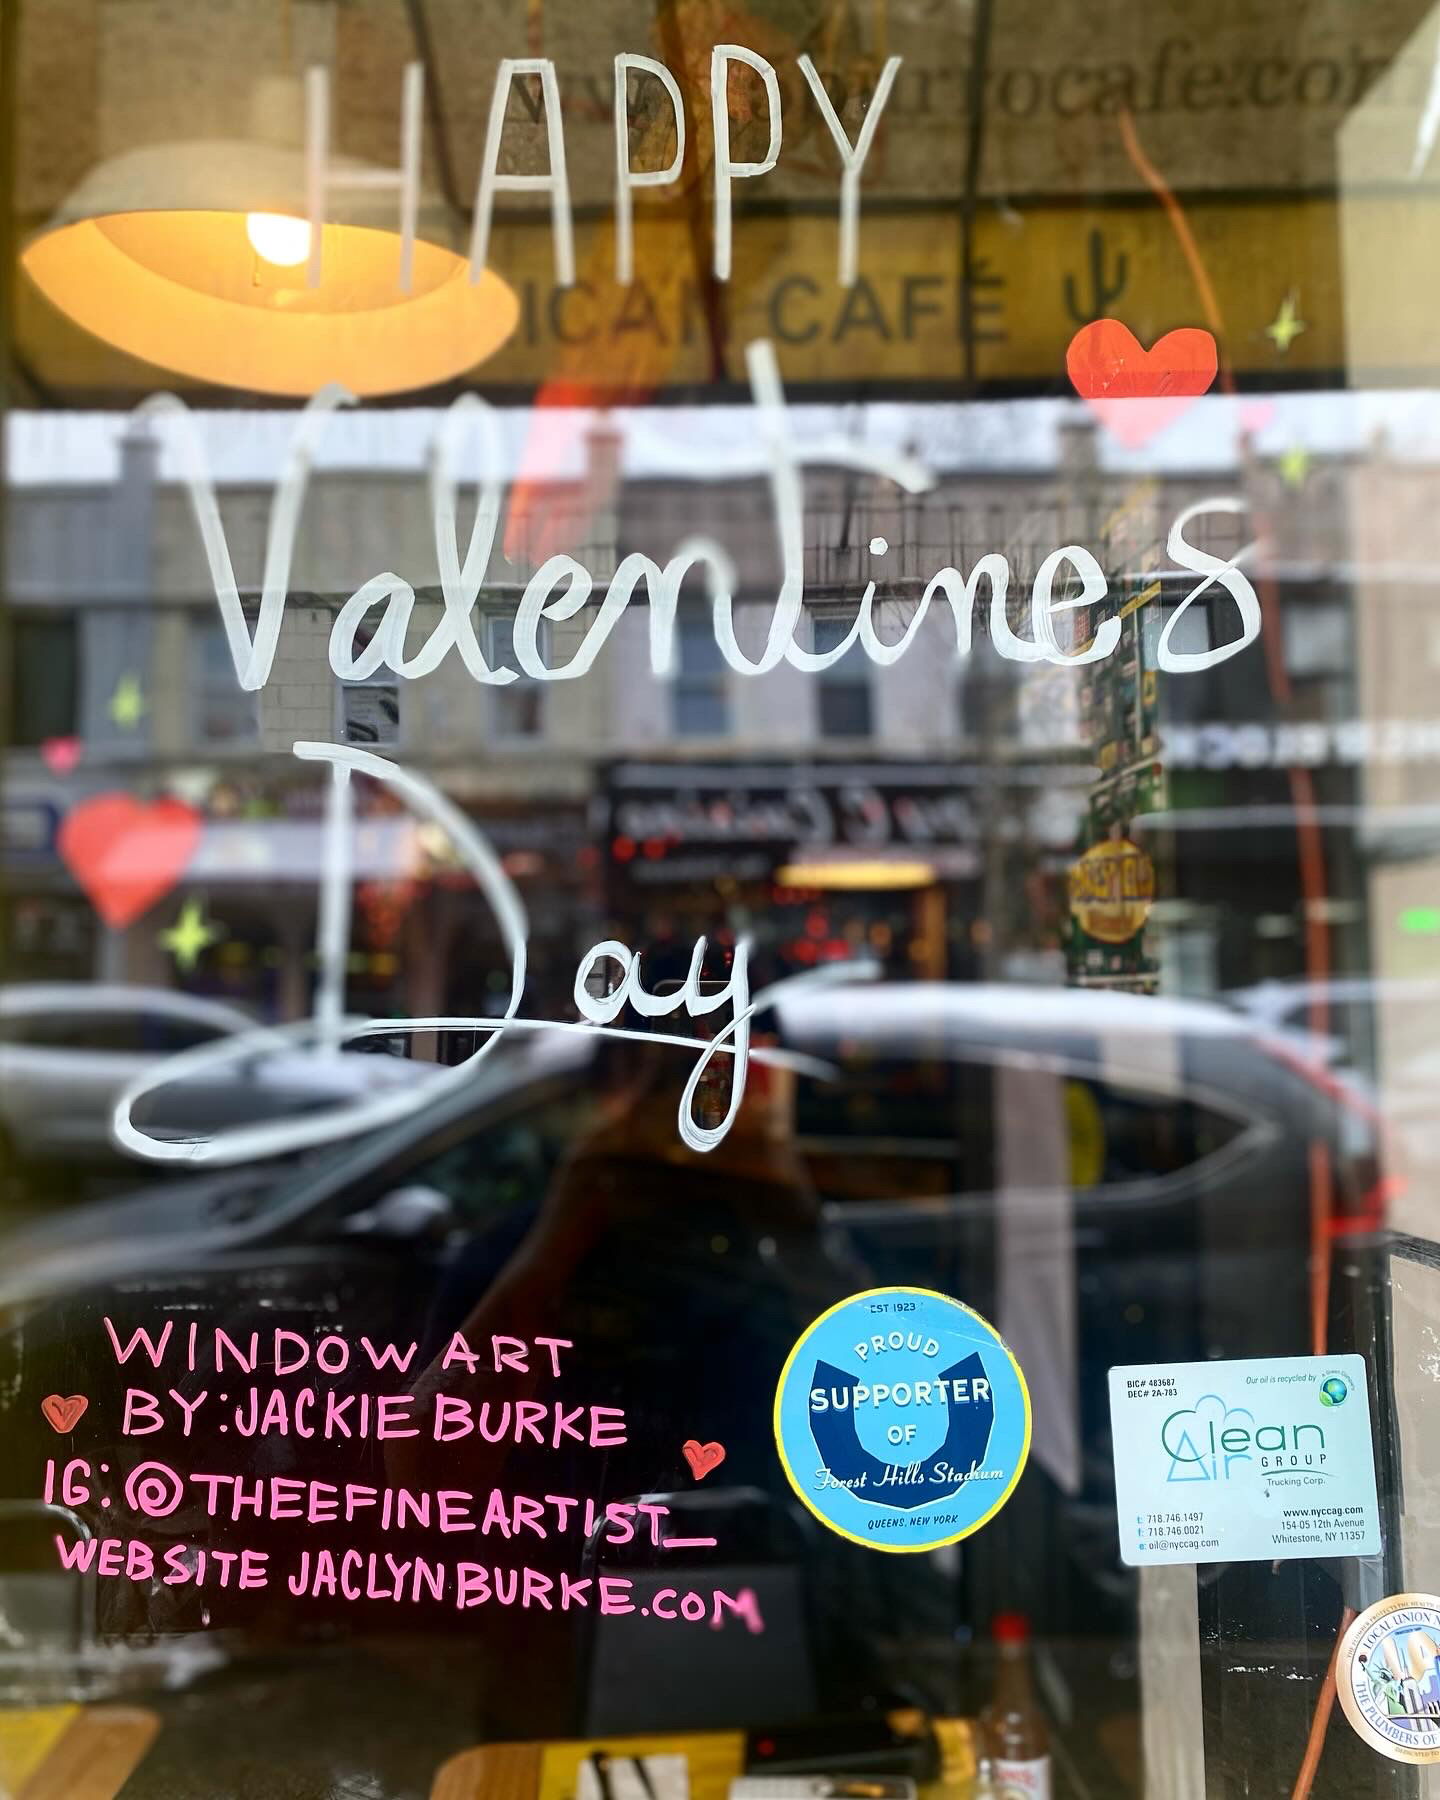 HAPPY
Valentines
Day
CAFÉ
WINDOW ART
BY: JACKIE BURKE
IG: @THEEFINEARTIST_
WEBSITE JACLYNBURKE.COM
EST 1923
PROUD
SUPPORTER
OF
Forest Hills Stadium
QUEENS, NEW YORK
BIC# 483687
DEC# 2A-783
Our oil is recycled by
Clean
Air GROUP
Trucking Corp.
t: 718.746.1497
f: 718.746.0021
e: oil@nyccag.com
www.nyccag.com
154-05 12th Avenue
Whitestone, NY 11357
LOCAL UNION
THE PLUMBERS OF